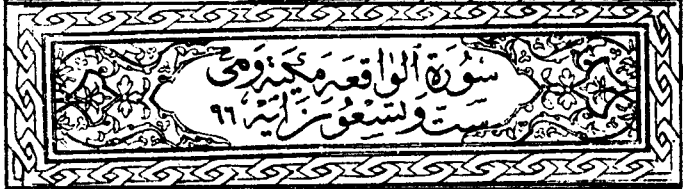 سُورَةُ ٱلْوَاقِعَةِ مَكِّيَّةٌ وَهِيَ
سِتٌّ وَتِسْعُونَ آيَةً ٩٦